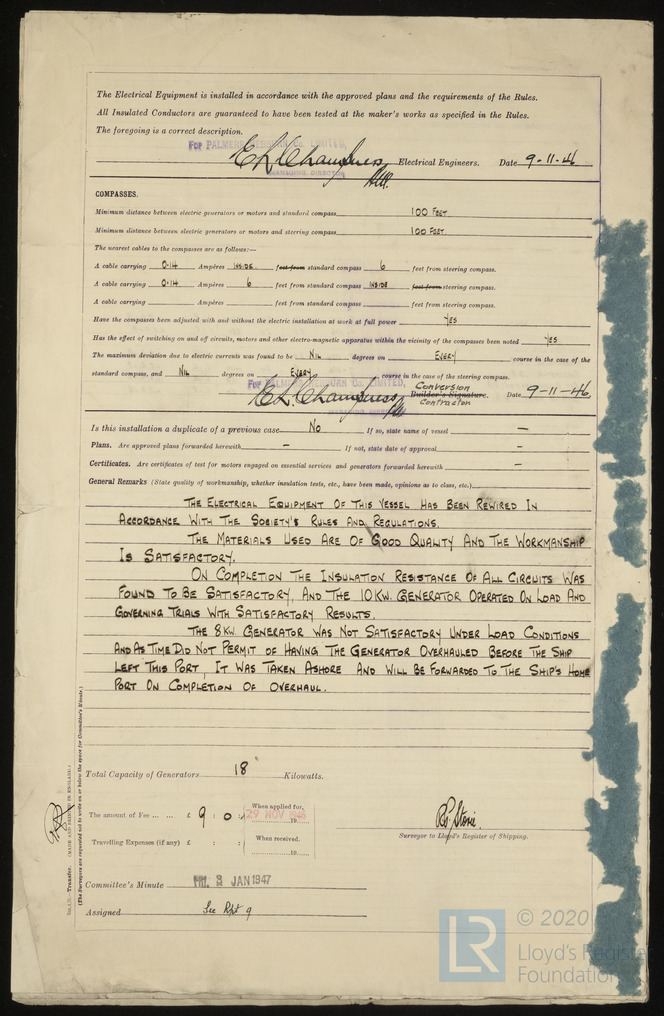 The Electrical Equipment is installed in accordance with the approved plans and the requirements of the Rules.
All Insulated Conductors are guaranteed to have been tested at the maker's works as specified in the Rules.
The foregoing is a correct description.
For PALMERS HEBBURN Co. LIMITED,
Electrical Engineers. Date 9-11-46
MANAGING DIRECTOR
COMPASSES.
Minimum distance between electric generators or motors and standard compass 100 FEET
Minimum distance between electric generators or motors and steering compass 100 FEET
The nearest cables to the compasses are as follows:—
A cable carrying 0.14 Ampères INSIDE feet from standard compass 6 feet from steering compass.
A cable carrying 0.14 Ampères 6 feet from standard compass INSIDE feet from steering compass.
A cable carrying Ampères feet from standard compass feet from steering compass.
Have the compasses been adjusted with and without the electric installation at work at full power YES
Has the effect of switching on and off circuits, motors and other electro-magnetic apparatus within the vicinity of the compasses been noted YES
The maximum deviation due to electric currents was found to be NIL degrees on EVERY course in the case of the
standard compass, and NIL degrees on EVERY course in the case of the steering compass.
For PALMERS HEBBURN Co. LIMITED,
CONVERSION
Builder's Signature. Date 9-11-46
CONTRACTOR
Is this installation a duplicate of a previous case No If so, state name of vessel —
Plans. Are approved plans forwarded herewith — If not, state date of approval —
Certificates. Are certificates of test for motors engaged on essential services and generators forwarded herewith —
General Remarks (State quality of workmanship, whether insulation tests, etc., have been made, opinions as to class, etc.)
THE ELECTRICAL EQUIPMENT OF THIS VESSEL HAS BEEN REWIRED IN
ACCORDANCE WITH THE SOCIETY'S RULES AND REGULATIONS.
THE MATERIALS USED ARE OF GOOD QUALITY AND THE WORKMANSHIP
IS SATISFACTORY.
ON COMPLETION THE INSULATION RESISTANCE OF ALL CIRCUITS WAS
FOUND TO BE SATISFACTORY, AND THE 10 KW. GENERATOR OPERATED ON LOAD AND
GOVERNING TRIALS WITH SATISFACTORY RESULTS.
THE 8 KW. GENERATOR WAS NOT SATISFACTORY UNDER LOAD CONDITIONS
AND AS TIME DID NOT PERMIT OF HAVING THE GENERATOR OVERHAULED BEFORE THE SHIP
LEFT THIS PORT, IT WAS TAKEN ASHORE AND WILL BE FORWARDED TO THE SHIP'S HOME
PORT ON COMPLETION OF OVERHAUL.
Total Capacity of Generators 18 Kilowatts.
The amount of Fee ... ... £ 9 : 0 :
When applied for,
29 NOV 1946
Travelling Expenses (if any) £ : :
When received.
19
Surveyor to Lloyd's Register of Shipping.
Committee's Minute FRI. 3 JAN 1947
Assigned See Rpt 9
Transfer. (MADE AND PRINTED IN ENGLAND.)
(The Surveyors are requested not to write on or below the space for Committee's Minute.)
LR
© 2020
Lloyd's Register
Foundation